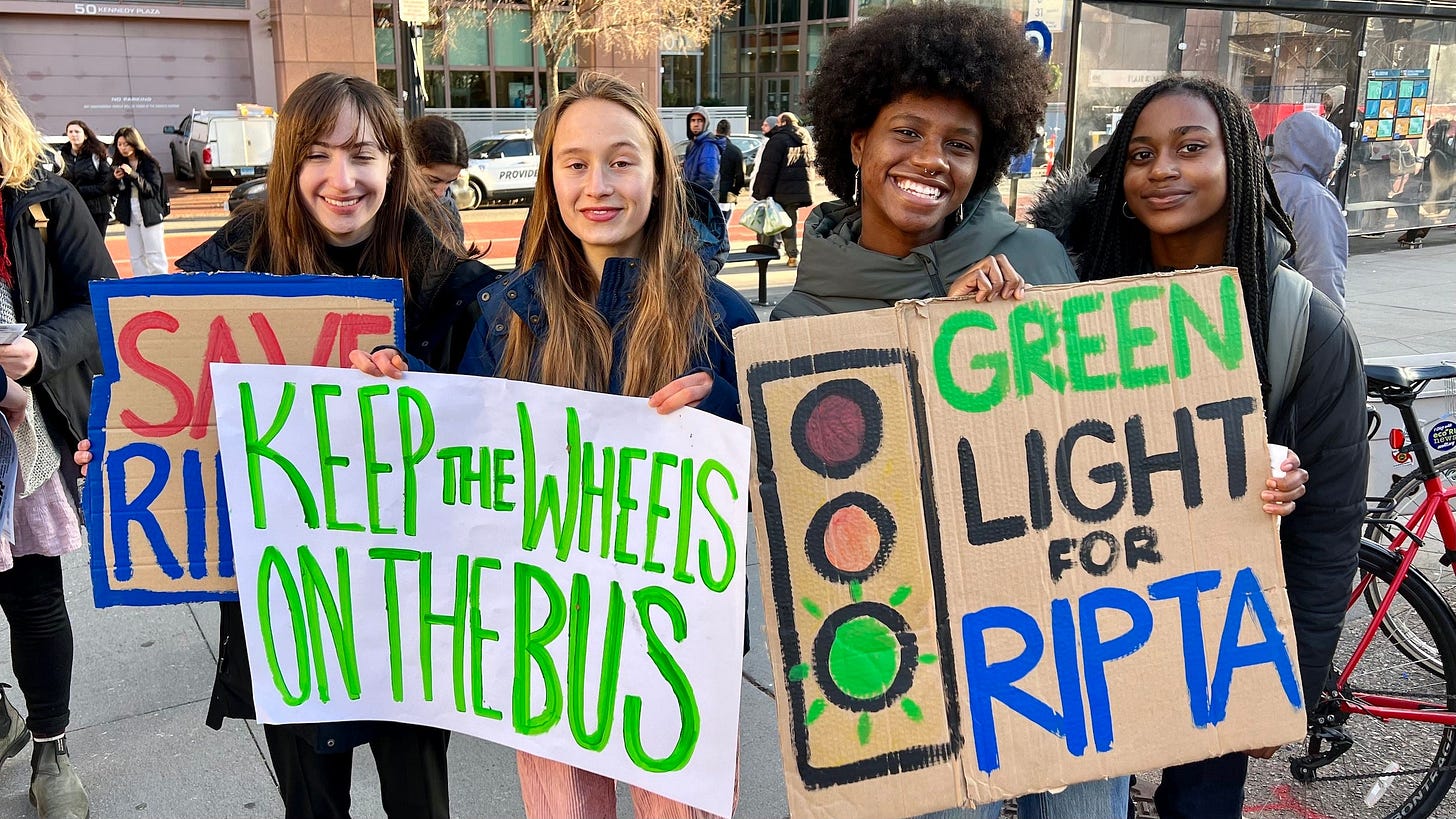 50 KENNEDY PLAZA
NO PARKING
PROVIDE
SAVE
RI
KEEP THE WHEELS
ON THE BUS
GREEN
LIGHT
FOR
RIPTA